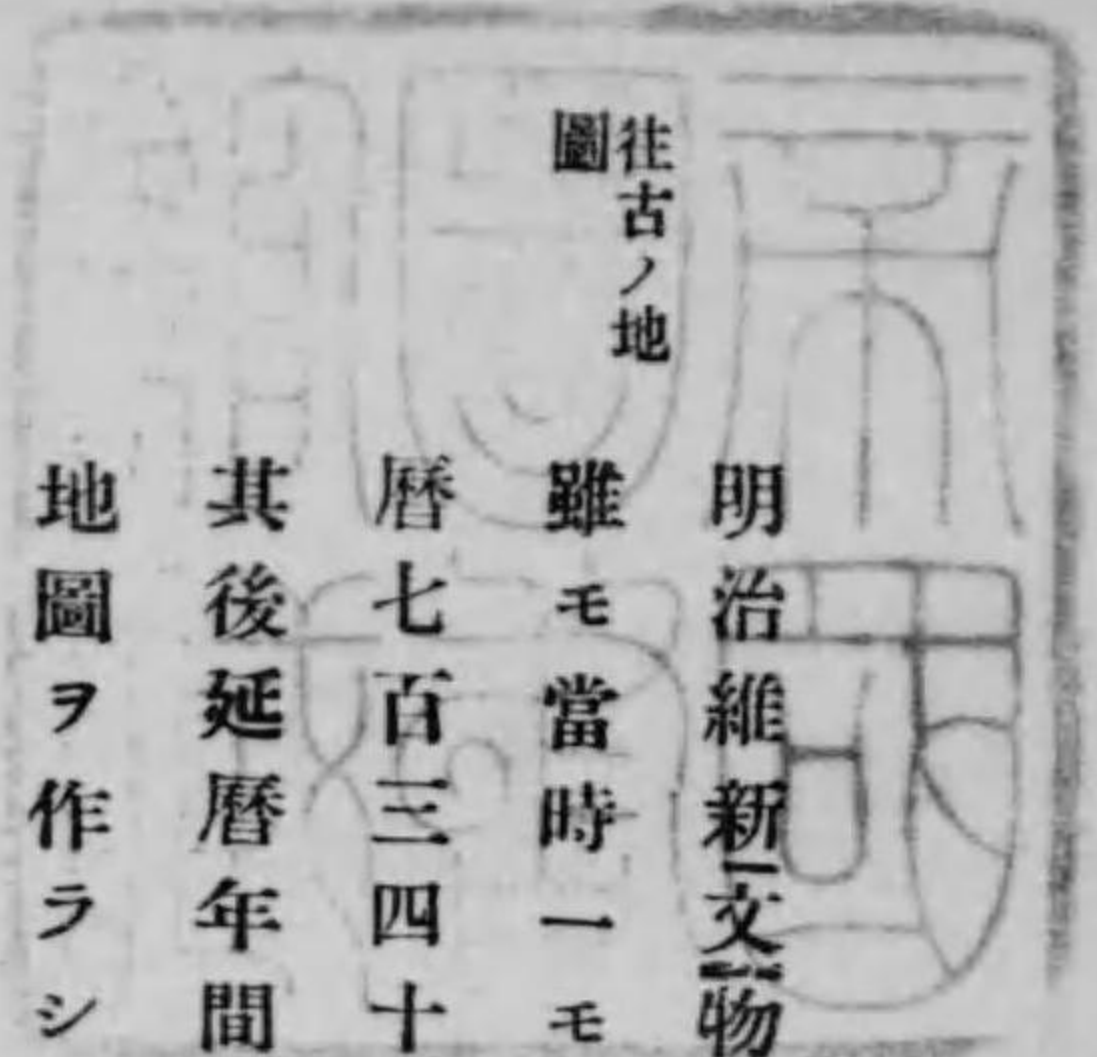 往古ノ地
圖
明治維新文物
雖モ當時一モ
曆七百三四十
其後延曆年間
地圖ヲ作ラシ